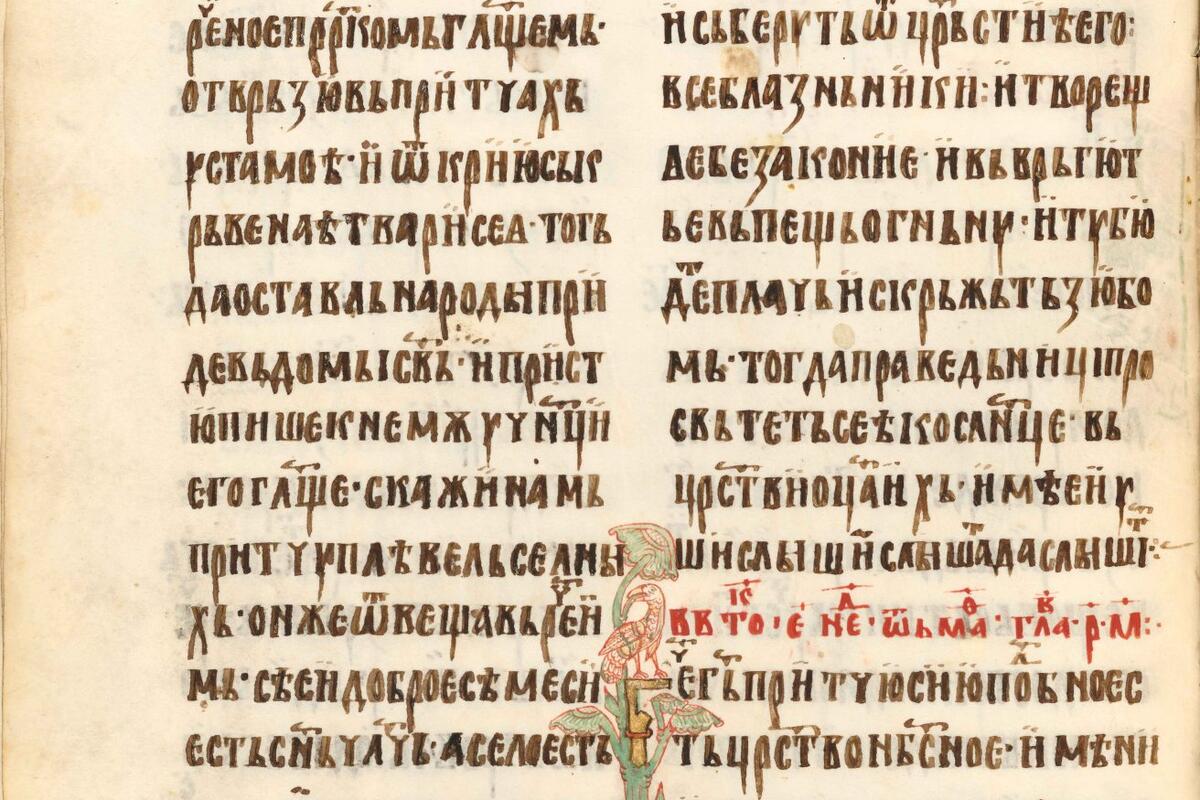 р҃еноепрр҃комьгл҃щемь·
отврьзювьпритчахь
устамоѣ· и ѿкриюськ
рьвенаѣтварисеѧ· тогь
даоставльнародыпри
девьдомьіск҃ь· иприст
юпишекнемѫучн҃ци
егогл҃ще· скажинамь
притчуплѣвельселны
хь· онжеѿвещавьр҃еи
мь· сѣеидоброесѣмеси
естьсн҃ьчл҃чь· аселоесть
исьберутьѿцр҃ьстиѣего:
всеблазньники: итворещ
дебезаконие· ивьврьгют
ьевьпещьогньну: итубю
дт҃еплачьискрьжьтьзюбо
мь· тогдаправедьниципро
свьтетьсеѣкослн҃це· вь
цр҃ствиоц҃аихь· имѣеиу
шислышисл҃ышадаслыші:
вв то· е҃ не· ѿ ма· гла· р҃· м҃:
ег҃ьпритчюсиюпобноес
тьцр҃ствонбс҃ное· имѣни